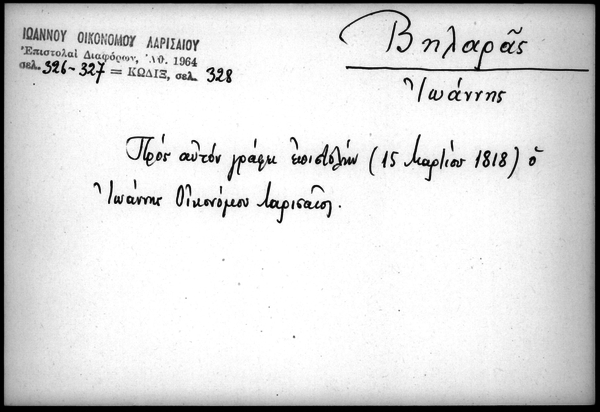 ΙΩΑΝΝΟΥ ΟΙΚΟΝΟΜΟΥ ΛΑΡΙΣΑΙΟΥ
Ἐπιστολαὶ Διαφόρων, Ἀθ. 1964
σελ. 326-327 = ΚΩΔΙΞ, σελ. 328
Βηλαρᾶς
Ἰωάννης
Πρὸς αὐτὸν γράφει ἐπιστολὴν (15 Μαρτίου 1818) ὁ
Ἰωάννης Οἰκονόμου Λαρισαῖος.